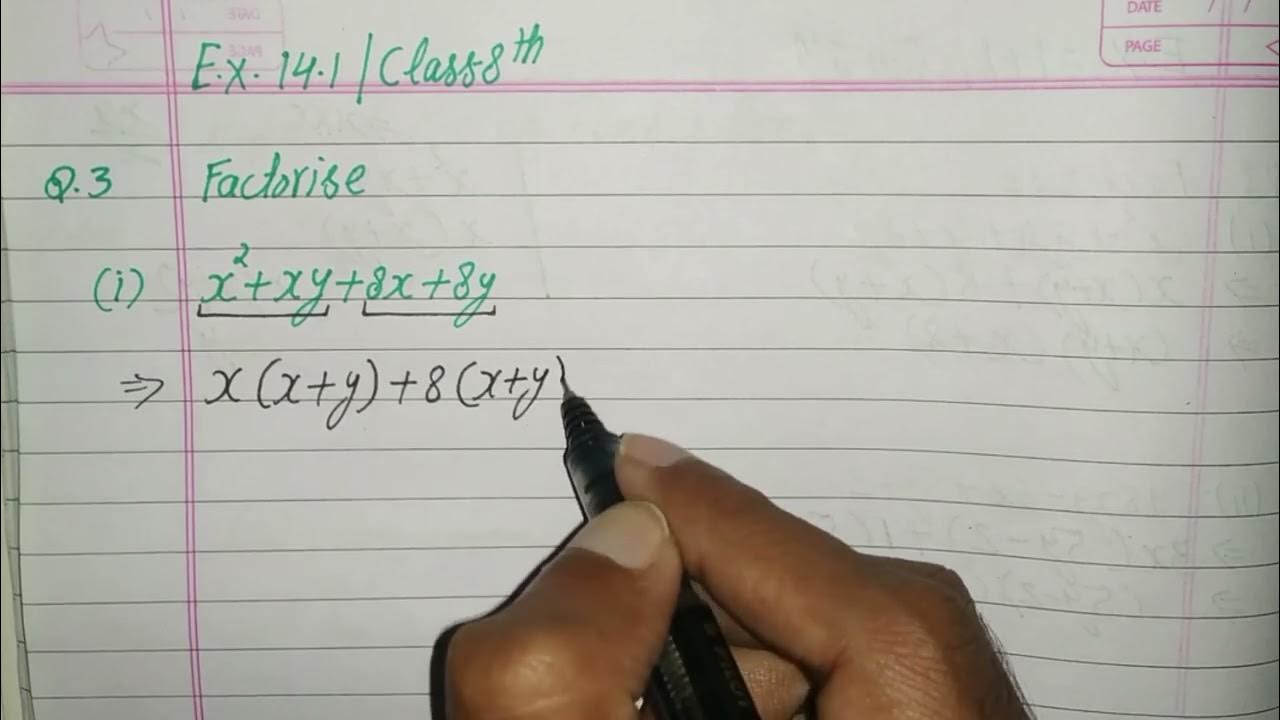 DATE / /
PAGE
Ex. 14.1 / Class 8th
Q.3 Factorise
(i) x²+xy+8x+8y
⇒ x(x+y)+8(x+y)